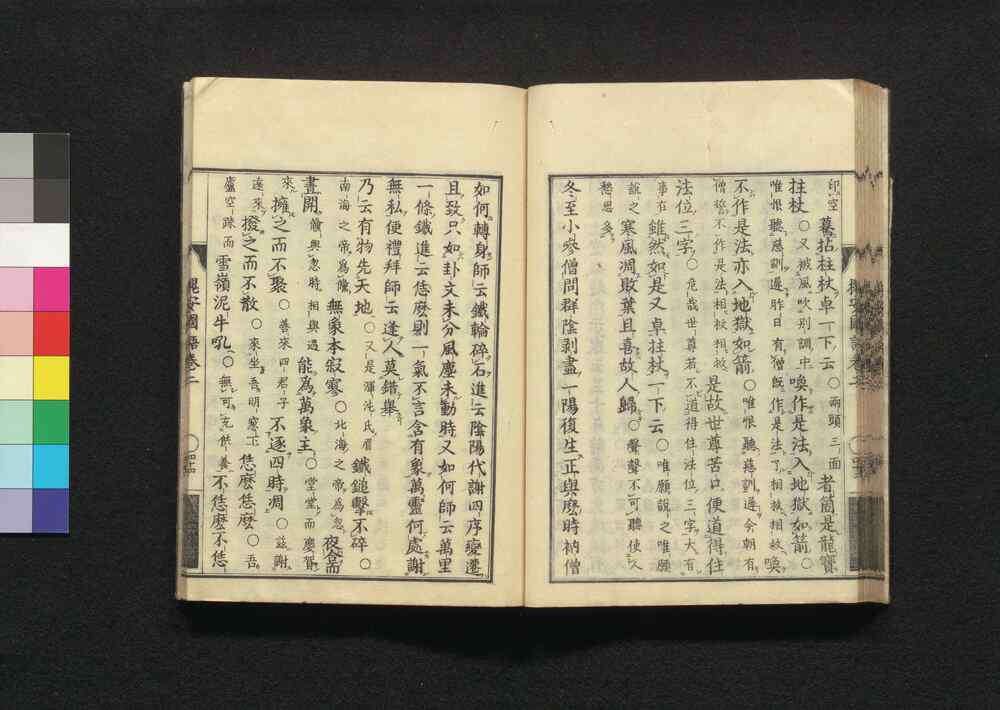 印空 驀拈柱杖卓一下云○兩頭三面者箇是龍寶
柱杖○又被風吹別調中喚作是法入地獄如箭○
唯恨聽慈訓遲昨日有僧既作是法了相救相救喚
不作是法亦入地獄如箭○唯恨聽慈訓遲今朝有
僧誓不作是法相救相救是故世尊苦口便道得住
法位三字○危哉世尊若不道得住法位三字大有
事在雖然如是又卓拄杖一下云○唯願說之唯願
說之寒風凋敗葉且喜故人歸○聲聲不可聽使人
愁思多
冬至小參僧問群陰剥盡一陽復生正與麼時衲僧
如何轉身師云鐵輪碎石進云陰陽代謝四序變遷
且致只如卦文未分風塵未動時又如何師云萬里
一條鐵進云恁麼則一氣不言含有象萬靈何處謝
無私便禮拜師云逢人莫錯舉
乃云有物先天地○又是渾沌氏眉鐵鎚擊不碎○
南海之帝爲儵無象本寂寥○北海之帝爲忽夜合而
晝開儵與忽時相與遇能爲萬象主○堂堂而慶賀
來擁之而不聚○善來四君子不逐四時凋○茲謝
遠來撥之而不散○來坐吾明寒下恁麼恁麼○吾
廬空踈而雪嶺泥牛吼○無可充供養不恁麼不恁
槐安國語卷二